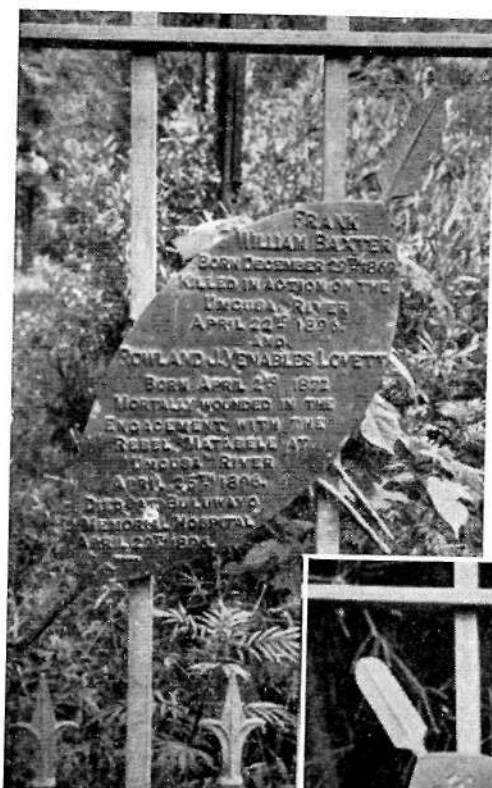 FRANK
WILLIAM BAXTER
BORN DECEMBER 29TH 1869
KILLED IN ACTION ON THE
UMGUSA RIVER
APRIL 22ND 1896.
AND
ROWLAND J. VENABLES LOVETT
BORN APRIL 2ND 1872
MORTALLY WOUNDED IN THE
ENGAGEMENT WITH THE
REBEL MATABELE AT
UMGUSA RIVER
APRIL 25TH 1896.
DIED AT BULUWAYO
MEMORIAL HOSPITAL
APRIL 29TH 1896.